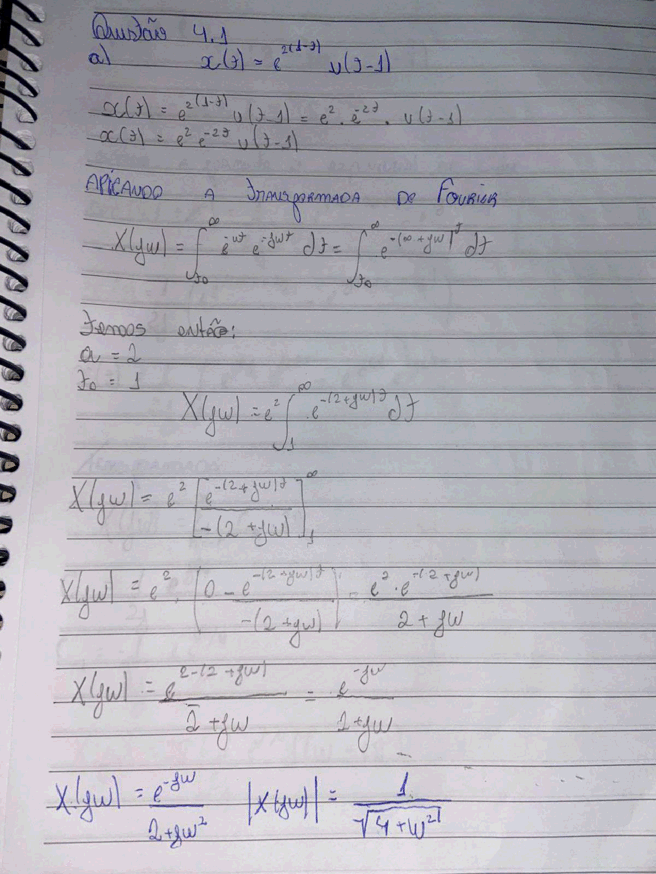 Questão 4.1
a) x(t) = e^{2(1-t)} u(t-1)
x(t) = e^{2(1-t)} u(t-1) = e^2 . e^{-2t} . u(t-1)
x(t) = e^2 e^{-2t} u(t-1)
APLICANDO A TRANSFORMADA DE FOURIER
X(jw) = ∫_{t0}^{∞} e^{-wt} e^{-jwt} dt = ∫_{t0}^{∞} e^{-(∞+jw)t} dt
Temos então:
a = 2
t0 = 1
X(jw) = e^2 ∫_1^{∞} e^{-(2+jw)t} dt
X(jw) = e^2 [e^{-(2+jw)t} / -(2+jw)]_1^{∞}
X(jw) = e^2 . (0 - e^{-(2+jw)t} / -(2+jw)) = e^2 . e^{-(2+jw)} / 2+jw
X(jw) = e^{2-(2+jw)} / 2+jw = e^{-jw} / 2+jw
X(jw) = e^{-jw} / 2+jw^2 |X(jw)| = 1 / √(4+w^2)